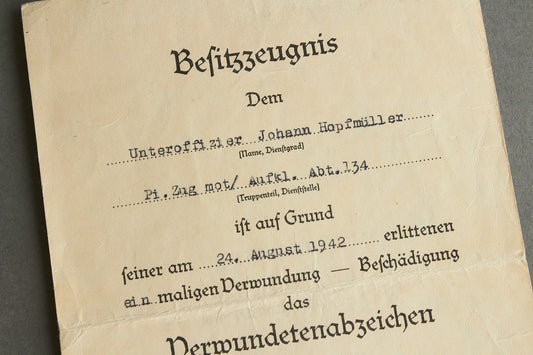 Besitzzeugnis
Dem
Unteroffizier Johann Hopfmüller
(Name, Dienstgrad)
Pi.Zug mot/ Aufkl. Abt.134
(Truppenteil, Dienststelle)
ist auf Grund
seiner am 24. August 1942 erlittenen
ein maligen Verwundung — Beschädigung
das
Verwundetenabzeichen